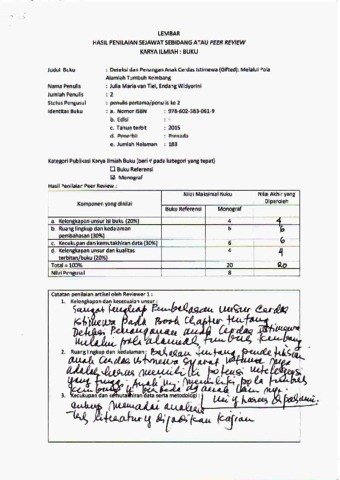 LEMBAR
HASIL PENILAIAN SEJAWAT SEBIDANG ATAU PEER REVIEW
KARYA ILMIAH : BUKU
Judul Buku : Deteksi dan Penangan Anak Cerdas Istimewa (Gifted); Melalui Pola
Alamiah Tumbuh Kembang
Nama Penulis : Julia Maria van Tiel, Endang Widyorini
Jumlah Penulis : 2
Status Pengusul : penulis pertama/penulis ke 2
Identitas Buku : a. Nomor ISBN : 978-602-383-061-9
b. Edisi : -
c. Tahun terbit : 2015
d. Penerbit : Prenada
e. Jumlah Halaman : 183
Kategori Publikasi Karya Ilmiah Buku (beri ✓ pada kategori yang tepat)
Buku Referensi
Monograf
Hasil Penilaian Peer Review :
Komponen yang dinilai
Nilai Maksimal Buku
Nilai Akhir yang Diperoleh
Buku Referensi Monograf
a. Kelengkapan unsur isi buku (20%) 4 4
b. Ruang lingkup dan kedalaman pembahasan (30%) 6 6
c. Kecukupan dan kemutakhiran data (30%) 6 6
d. Kelengkapan unsur dan kualitas terbitan/buku (20%) 4 4
Total = 100% 20 20
Nilai Pengusul 8
Catatan penilaian artikel oleh Reviewer 1 :
1. Kelengkapan dan kesesuaian unsur :
Sangat lengkap Pembahasan unsur Cerdas
istimewa pada Book Chapter tentang
Deteksi Penanganan anak Cerdas Istimewa
melalui pola alamiah tumbuh kembang
2. Ruang lingkup dan kedalaman : Bahasan tentang pendeteksian
anak Cerdas Istimewa syarat utama nya
adalah harus memiliki potensi intelegensi
yang tinggi. Anak ini memiliki pola tumbuh
kembang berbeda dg anak lain nya.
3. Kecukupan dan kemutakhiran data serta metodologi : Ini yg harus dipahami.
cukup memadai analisis
literatur yg dijadikan kajian